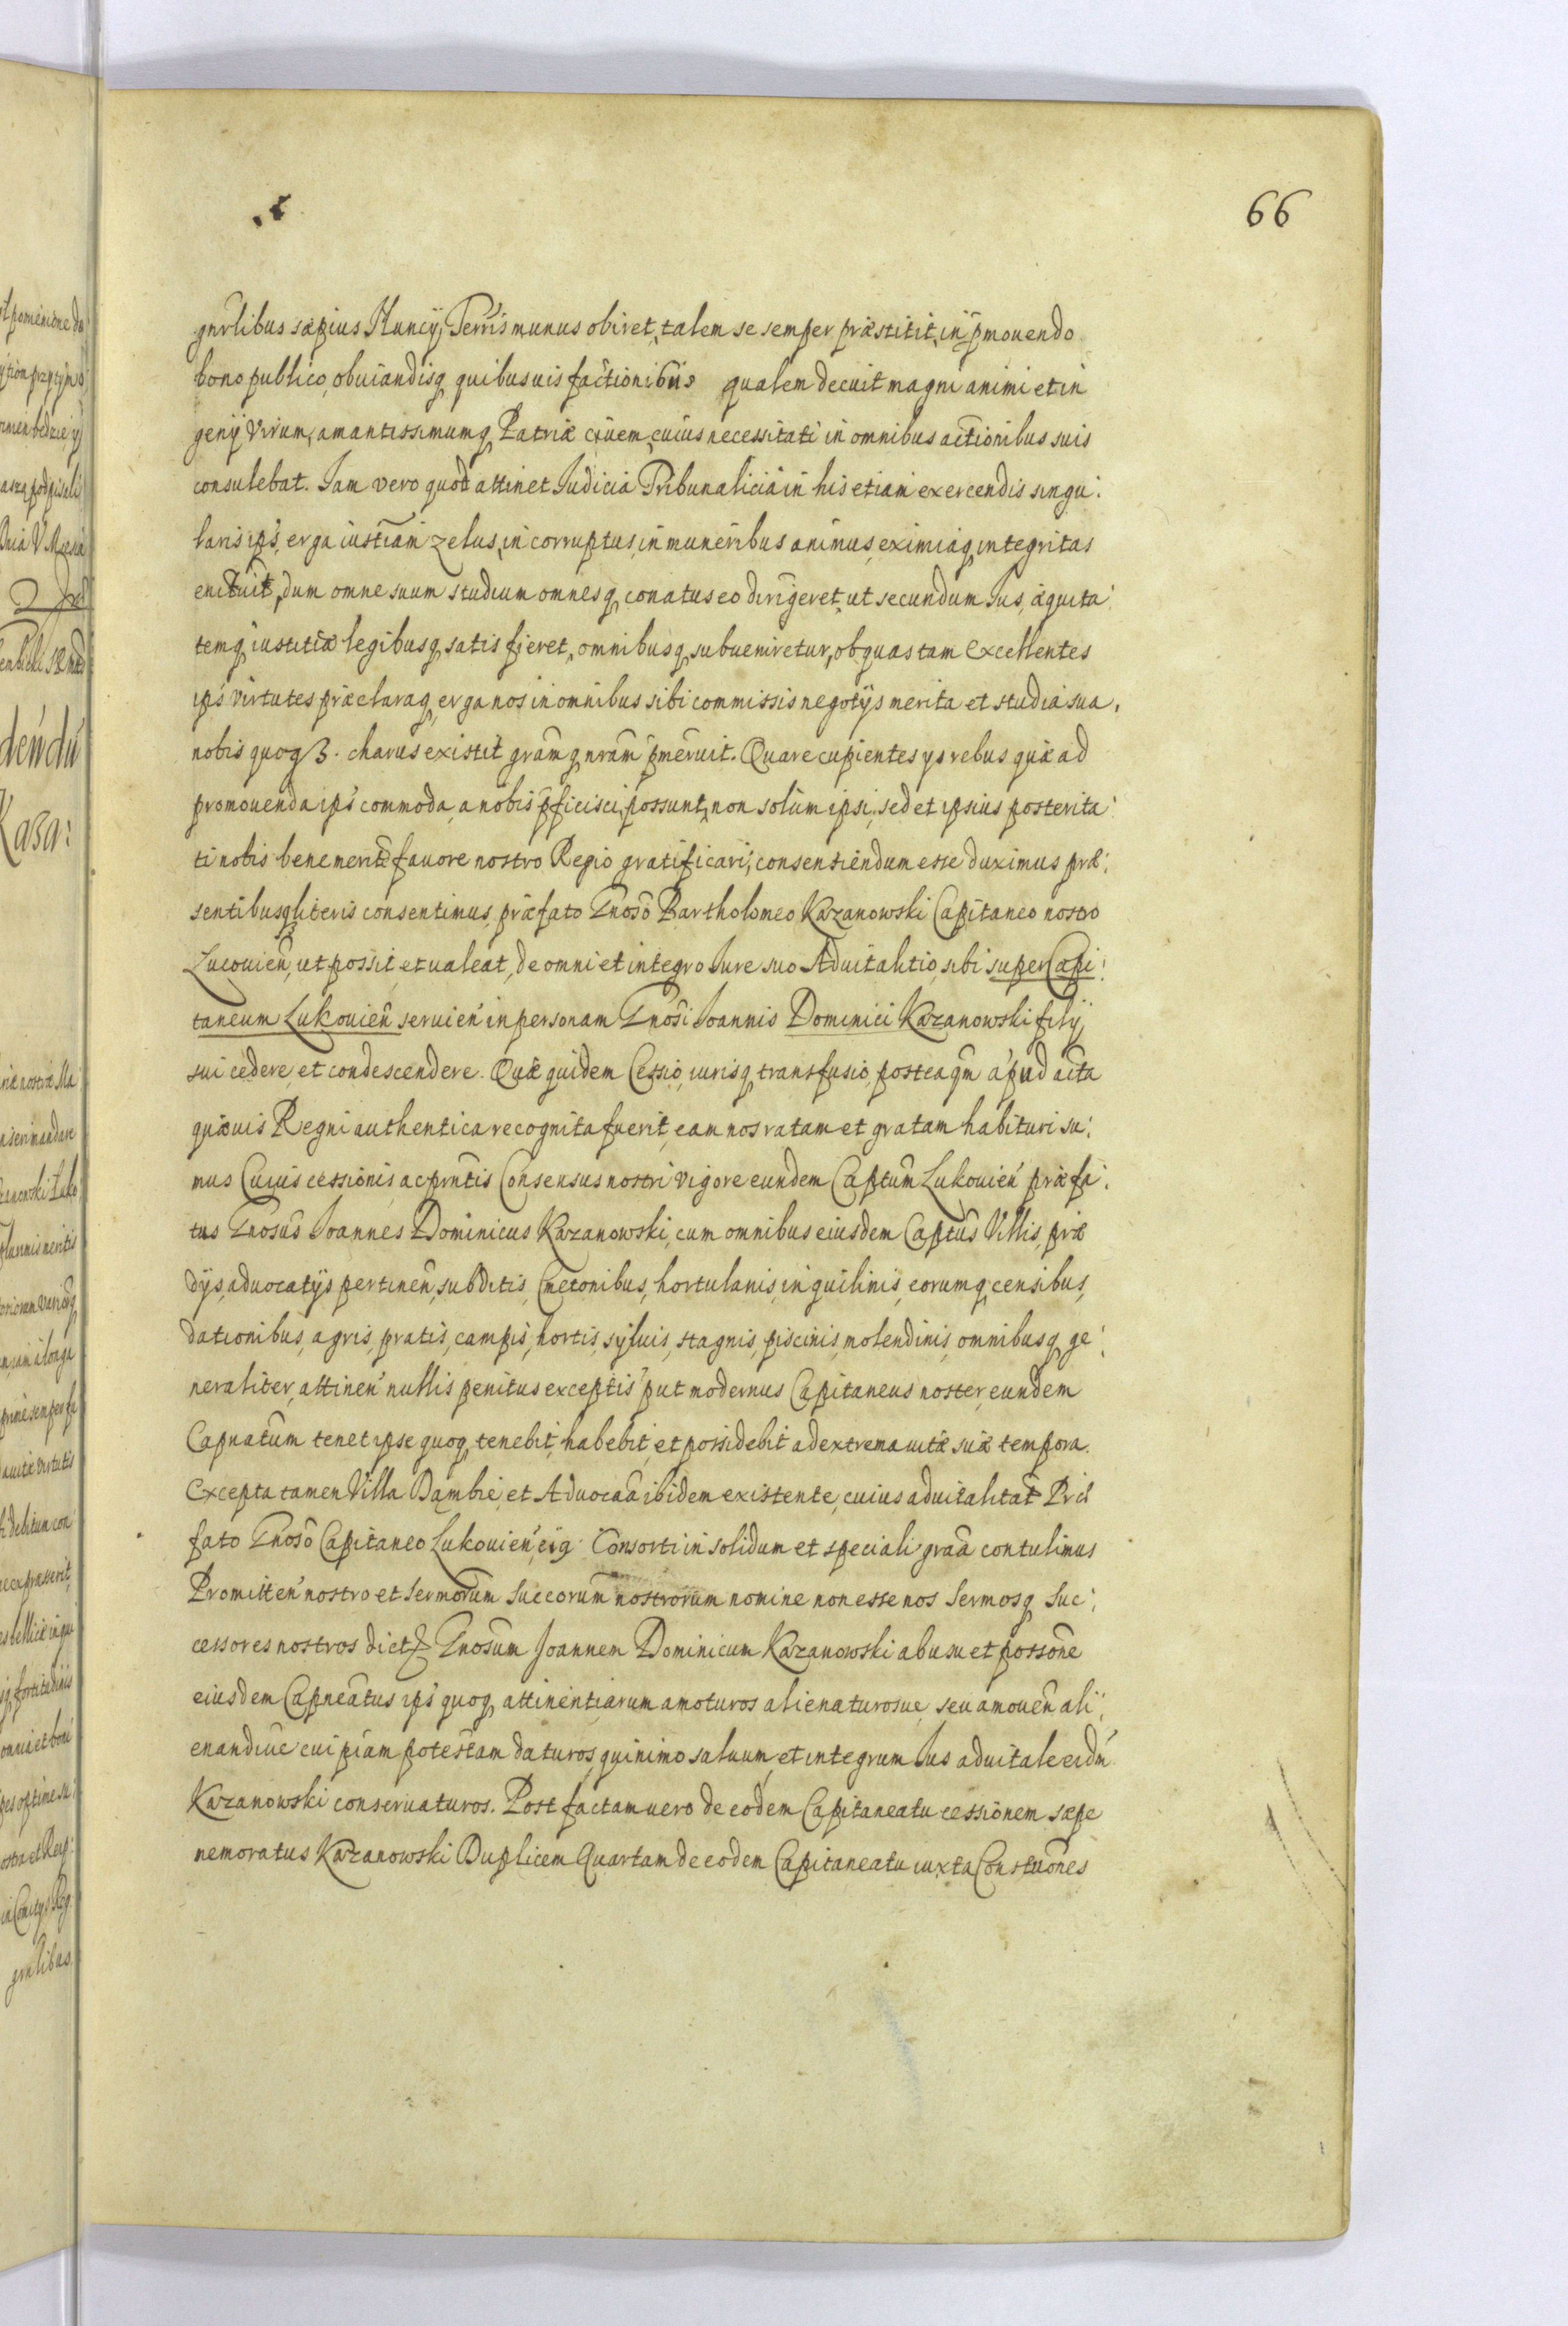 66
gnrlibus sæpius Nuncij Terris munus obiret, talem se semper præstitit, in pmouendo
bono publico, obuiandisq quibusuis factionibus qualem decuit magni animi et in
genij Virum, amantissimumq Patriæ ciuem, cuius necessitati in omnibus actionibus suis
consulebat. Iam vero quod attinet Iudicia Tribunalicia in his etiam exercendis singu:
laris ips, erga iustiam zelus, in corruptus, in muneribus animus, eximiaq integritas
enituit, dum omne suum studium omnesq conatus eo dirigeret, ut secundum Ius, æquita:
temq iustitiæ legibusq satis fieret, omnibusq subueniretur, ob quas tam excellentes
ips virtutes præclaraq erga nos in omnibus sibi commissis negotijs merita et studia sua,
nobis quoq3. charus existit gramq nram pmeruit. Quare cupientes ys rebus quæ ad
promouenda ips commoda, a nobis pficisci possunt, non solum ipsi, sed et ipsius posterita:
ti nobis bene merite fauore nostro Regio gratificari, consentiendum esse duximus præ:
sentibusq literis consentimus, præfato Gnoso Bartholomeo Kazanowski Capitaneo nostro
Lucouien, ut possit, et ualeat, de omni et integro Iure suo Aduitalitio, sibi super Capi:
taneum Lukouien seruien in personam Gnosi Joannis Dominici Kazanowski filij
sui cedere, et condescendere. Quæ quidem Cessio, iurisq transfusio, postea qm apud acta
quæuis Regni authentica recognita fuerit, eam nos ratam et gratam habituri su:
mus Cuius cessionis, ac pntis Consensus nostri vigore eundem Captum Lukouien præfa:
tus Gnosus Joannes Dominicus Kazanowski, cum omnibus eiusdem Captus Villis, præ
dijs, aduocatijs pertinen, subditis, Cmetonibus, hortulanis, inquilinis, eorumq censibus,
dationibus, agris, pratis, campis, hortis, syluis, stagnis, piscinis, molendinis, omnibusq ge:
neraliter, attinen nullis penitus exceptis put modernus Capitaneus noster, eundem
Capnatum tenet ipse quoq tenebit, habebit, et possidebit ad extrema uitæ suæ tempora.
Excepta tamen Villa Dąmbie, et Aduocaa ibidem existente, cuius aduitalitat Præ
fato Gnoso Capitaneo Lukouien, eiq Consorti in solidum et speciali graa contulimus
Promitten nostro et Sermorum Succorum nostrorum nomine non esse nos Sermosq Suc:
cessores nostros dict Gnosum Joannem Dominicum Kazanowski ab usu et possone
eiusdem Capneatus ips quoq attinentiarum amoturos alienaturosue, seu amouen ali:
enandiue cuipiam potestam daturos, quinimo saluum, et integrum Ius aduitale eidm
Kazanowski conseruaturos. Post factam uero de eodem Capitaneatu cessionem sæpe
nemoratus Kazanowski Duplicem Quartam de eodem Capitaneatu iuxta Constuones